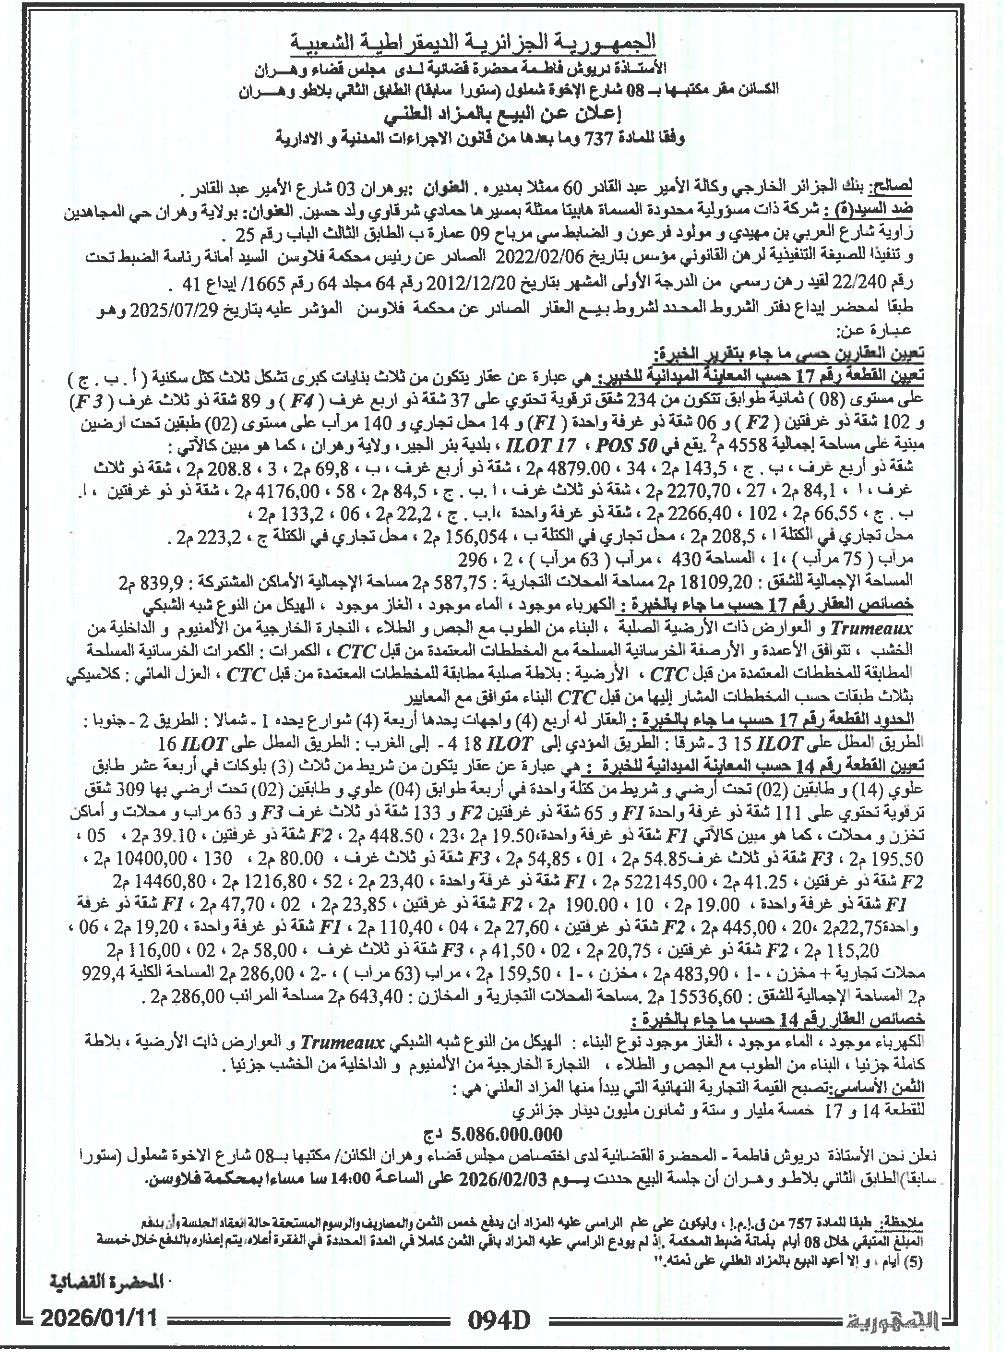 الجمهورية الجزائرية الديمقراطية الشعبية
الأستاذة دريوش فاطمة محضرة قضائية لدى مجلس قضاء وهران
الكائن مقر مكتبها بـ 08 شارع الإخوة شملول (ستورا سابقا) الطابق الثاني بلاطو وهران
إعلان عن البيع بالمزاد العلني
وفقا للمادة 737 وما بعدها من قانون الاجراءات المدنية و الادارية
لصالح: بنك الجزائر الخارجي وكالة الأمير عبد القادر 60 ممثلا بمديره . العنوان :بوهران 03 شارع الأمير عبد القادر .
ضد السيد(ة) : شركة ذات مسؤولية محدودة المسماة هابيتا ممثلة بمسيرها حمادي شرقاوي ولد حسين. العنوان: بولاية وهران حي المجاهدين
زاوية شارع العربي بن مهيدي و مولود فرعون و الضابط سي مرباح 09 عمارة ب الطابق الثالث الباب رقم 25 .
و تنفيذا للصيغة التنفيذية لرهن القانوني مؤسس بتاريخ 2022/02/06 الصادر عن رئيس محكمة فلاوسن السيد أمانة رئاسة الضبط تحت
رقم 22/240 لقيد رهن رسمي من الدرجة الأولى المشهر بتاريخ 2012/12/20 رقم 64 مجلد 64 رقم 1665/ إيداع 41 .
طبقا لمحضر إيداع دفتر الشروط المحدد لشروط بيع العقار الصادر عن محكمة فلاوسن المؤشر عليه بتاريخ 2025/07/29 وهو
عبارة عن:
تعيين العقارين حسي ما جاء بتقرير الخبرة:
تعيين القطعة رقم 17 حسب المعاينة الميدانية للخبير: هي عبارة عن عقار يتكون من ثلاث بنايات كبرى تشكل ثلاث كتل سكنية ( أ . ب . ج )
على مستوى (08 ) ثمانية طوابق تتكون من 234 شقق ترقوية تحتوي على 37 شقة ذو اربع غرف ( F4 ) و 89 شقة ذو ثلاث غرف ( F3 )
و 102 شقة ذو غرفتين ( F2 ) و 06 شقة ذو غرفة واحدة ( F1 ) و 14 محل تجاري و 140 مرأب على مستوى (02) طبقين تحت ارضين
مبنية على مساحة إجمالية 4558 م2 يقع في POS 50 ، ILOT 17 ، بلدية بئر الجير، ولاية وهران ، كما هو مبين كالآتي :
شقة ذو أربع غرف ، ب . ج ، 143,5 م2 ، 34 ، 4879.00 م2 ، شقة ذو أربع غرف ، ب ، 69,8 م2 ، 3 ، 208.8 م2 ، شقة ذو ثلاث
غرف ، ا ، 84,1 م2 ، 27 ، 2270,70 م2 ، شقة ذو ثلاث غرف ، ا .ب . ج ، 84,5 م2 ، 58 ، 4176,00 م2 ، شقة ذو ذو غرفتين ، ا.
ب . ج ، 66,55 م2 ، 102 ، 2266,40 م2 ، شقة ذو غرفة واحدة ،ا.ب . ج ، 22,2 م2 ، 06 ، 133,2 م2 ،
محل تجاري في الكتلة ا ، 208,5 م2 ، محل تجاري في الكتلة ب ، 156,054 م2 ، محل تجاري في الكتلة ج ، 223,2 م2 .
مرأب (75 مرأب ) ،1 ، المساحة 430 ، مرأب ( 63 مرأب ) ، 2 ، 296
المساحة الإجمالية للشقق : 18109,20 م2 مساحة المحلات التجارية : 587,75 م2 مساحة الإجمالية الأماكن المشتركة : 839,9 م2
خصائص العقار رقم 17 حسب ما جاء بالخبرة : الكهرباء موجود ، الماء موجود ، الغاز موجود ، الهيكل من النوع شبه الشبكي
Trumeaux و العوارض ذات الأرضية الصلبة ، البناء من الطوب مع الجص و الطلاء ، النجارة الخارجية من الألمنيوم و الداخلية من
الخشب ، تتوافق الأعمدة و الأرصفة الخرسانية المسلحة مع المخططات المعتمدة من قبل CTC ، الكمرات : الكمرات الخرسانية المسلحة
المطابقة للمخططات المعتمدة من قبل CTC ، الأرضية : بلاطة صلبة مطابقة للمخططات المعتمدة من قبل CTC ، العزل المائي : كلاسيكي
بثلاث طبقات حسب المخططات المشار إليها من قبل CTC البناء متوافق مع المعايير
الحدود القطعة رقم 17 حسب ما جاء بالخبرة : العقار له أربع (4) واجهات يحدها أربعة (4) شوارع يحده 1 - شمالا : الطريق 2 - جنوبا :
الطريق المطل على ILOT 15 3 - شرقا : الطريق المؤدي إلى ILOT 18 4 - إلى الغرب : الطريق المطل على ILOT 16
تعيين القطعة رقم 14 حسب المعاينة الميدانية للخبرة : هي عبارة عن عقار يتكون من شريط من ثلاث (3) بلوكات في أربعة عشر طابق
علوي (14) و طابقين (02) تحت أرضي و شريط من كتلة واحدة في أربعة طوابق (04) علوي و طابقين (02) تحت أرضي بها 309 شقق
ترقوية تحتوي على 111 شقة ذو غرفة واحدة F1 و 65 شقة ذو غرفتين F2 و 133 شقة ذو ثلاث غرف F3 و 63 مراب و محلات و أماكن
تخزن و محلات ، كما هو مبين كالآتي F1 شقة ذو غرفة واحدة،19.50 م2 ، 23، 448.50 م2 ، F2 شقة ذو غرفتين ، 39.10 م2 ، 05 ،
195.50 م2 ، F3 شقة ذو ثلاث غرف54.85 م2 ، 01 ، 54,85 م2 ، F3 شقة ذو ثلاث غرف ، 80.00 م2 ، 130 ، 10400,00 م2 ،
F2 شقة ذو غرفتين ، 41.25 م2 ، 522145,00 م2 ، F1 شقة ذو غرفة واحدة ، 23,40 م2 ، 52 ، 1216,80 م2 ، 14460,80 م2
F1 شقة ذو غرفة واحدة ، 19.00 م2 ، 10 ، 190.00 م2 ، F2 شقة ذو غرفتين ، 23,85 م2 ، 02 ، 47,70 م2 ، F1 شقة ذو غرفة
واحدة22,75م2 ،20، 445,00 م2 ، F2 شقة ذو غرفتين ، 27,60 م2 ، 04 ، 110,40 م2 ، F1 شقة ذو غرفة واحدة ، 19,20 م2 ، 06 ،
115,20 م2 ، F2 شقة ذو غرفتين ، 20,75 م2 ، 02 ، 41,50 م ، F3 شقة ذو ثلاث غرف ، 58,00 م2 ، 02 ، 116,00 م2
محلات تجارية + مخزن ، -1 ، 483,90 م2 ، مخزن ، -1 ، 159,50 م2 ، مراب (63 مراب ) ، -2 ، 286,00 م2 المساحة الكلية 929,4
م2 المساحة الإجمالية للشقق : 15536,60 م2 .مساحة المحلات التجارية و المخازن : 643,40 م2 مساحة المرائب 286,00 م2 .
خصائص العقار رقم 14 حسب ما جاء بالخبرة :
الكهرباء موجود ، الماء موجود ، الغاز موجود نوع البناء : الهيكل من النوع شبه الشبكي Trumeaux و العوارض ذات الأرضية ، بلاطة
كاملة جزئيا ، البناء من الطوب مع الجص و الطلاء ، النجارة الخارجية من الألمنيوم و الداخلية من الخشب جزئيا .
الثمن الأساسي:تصبح القيمة التجارية النهائية التي يبدأ منها المزاد العلني هي :
للقطعة 14 و 17 خمسة مليار و ستة و ثمانون مليون دينار جزائري
5.086.000.000 دج
نعلن نحن الأستاذة دريوش فاطمة - المحضرة القضائية لدى اختصاص مجلس قضاء وهران الكائن/ مكتبها بـ08 شارع الاخوة شملول (ستورا
سابقا)الطابق الثاني بلاطو وهران أن جلسة البيع حددت يـوم 2026/02/03 على الساعة 14:00 سا مساءا بمحكمة فلاوسن.
ملاحظة: طبقا للمادة 757 من ق.إ.م.إ ، وليكون على علم الراسي عليه المزاد أن يدفع خمس الثمن والمصاريف والرسوم المستحقة حالة انعقاد الجلسة وأن يدفع
المبلغ المتبقي خلال 08 أيام بأمانة ضبط المحكمة .إذ لم يودع الراسي عليه المزاد باقي الثمن كاملا في المدة المحددة في الفقرة أعلاه، يتم إعذاره بالدفع خلال خمسة
(5) أيام ، و إلا أعيد البيع بالمزاد العلني على ذمته.''
المحضرة القضائية
الجمهورية
094D
2026/01/11